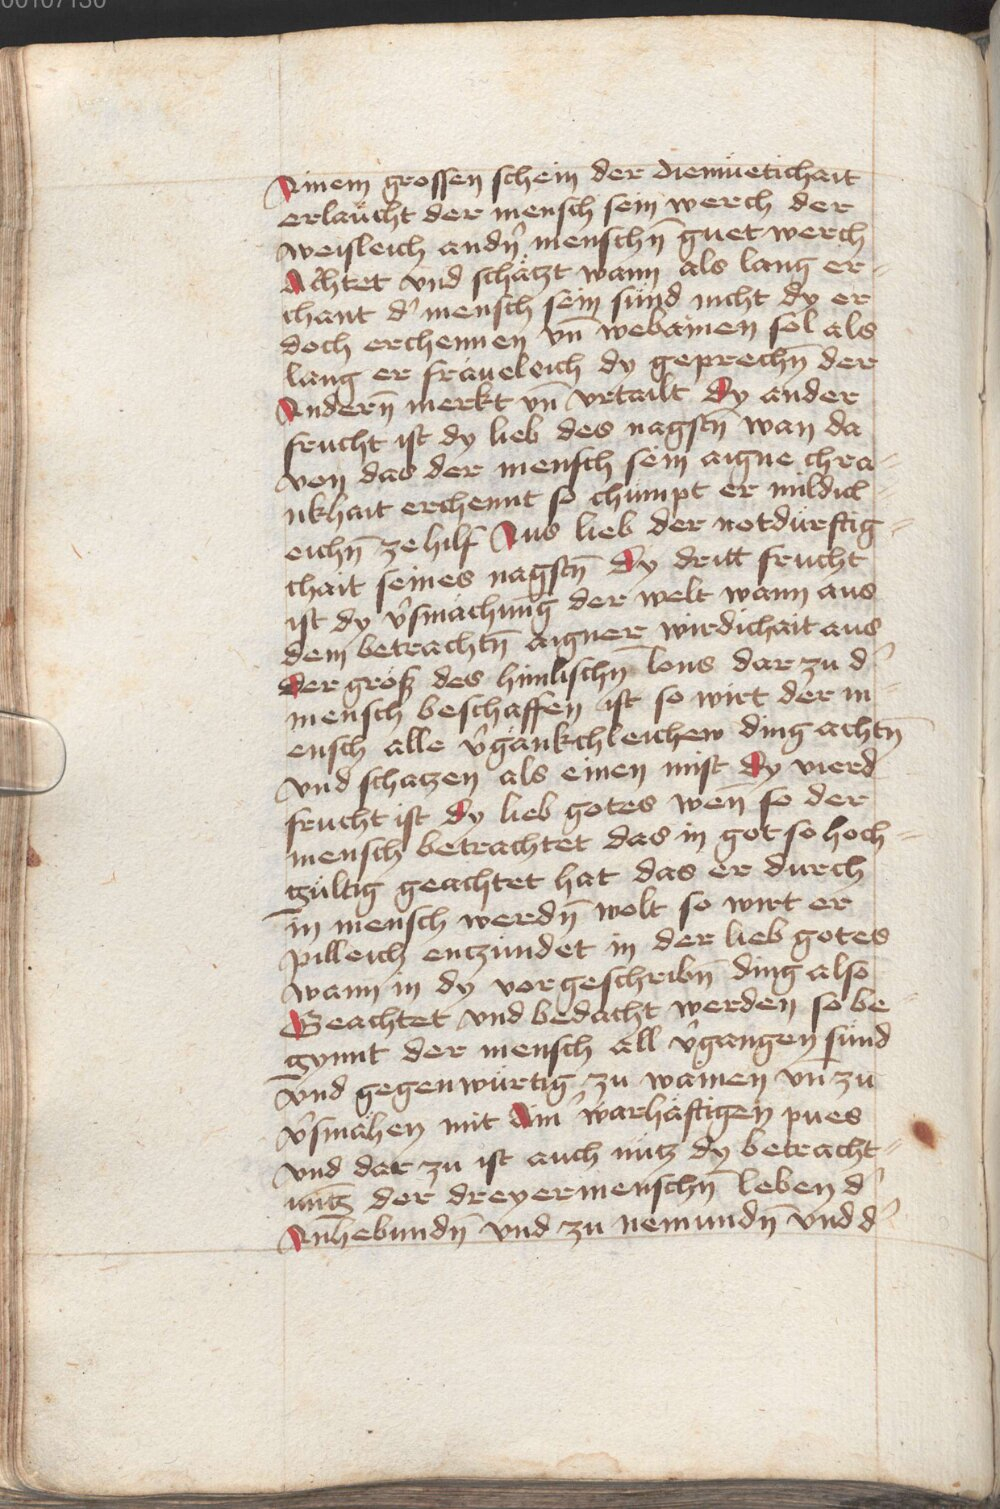 00107130
Ainem grossen schein der diemüetichait
erlaücht der mensch sein werch der
weisleich andn̄ menschn̄ guet werch
Achtet vnd schätzt wann als lang er-
chant d' mensch sein sünd nicht dy er
doch erchennen vn̄ webainen sol als
lang er fräueleich dy geprechn̄ der
Andern̄ merkt vn̄ vrtailt dy ander
frucht ist dy lieb des nagstn̄ wan da
von das der mensch sein aigne chra-
nkhait erchennt so chümpt er mildicl-
eichn̄ ze hilf Aus lieb der notdürftig-
chait seines nagstn̄ Dy dritt frucht
ist dy v'smächung der welt wann aus
dem betrachtn̄ aigner wirdichait aus
der gröss des himlischn̄ lons dar zu d'
mensch beschaffen ist so wirt der m-
ensch alle v'gänkchleichew ding achtn̄
vnd schatzen als einen mist dy vierd
frucht ist dy lieb gotes wen̄ so der
mensch betrachtet das in got so hoch-
gültig geachtet hat das er durch
in mensch werdn̄ wolt so wirt er
pilleich entzündet in der lieb gotes
wann in dy vorgeschribn̄ ding also
Geachtet vnd bedacht werden so be-
gynnt der mensch all v'gangen sünd
vnd gegenwürtig zu wainen vn̄ zu
v'smähen mit aim' warhäftigen pues
vnd dar zu ist auch nütz dy betracht-
ung der dreyer menschn̄ leben d'
Anhebundn̄ vnd zu nemundn̄ vnd d'